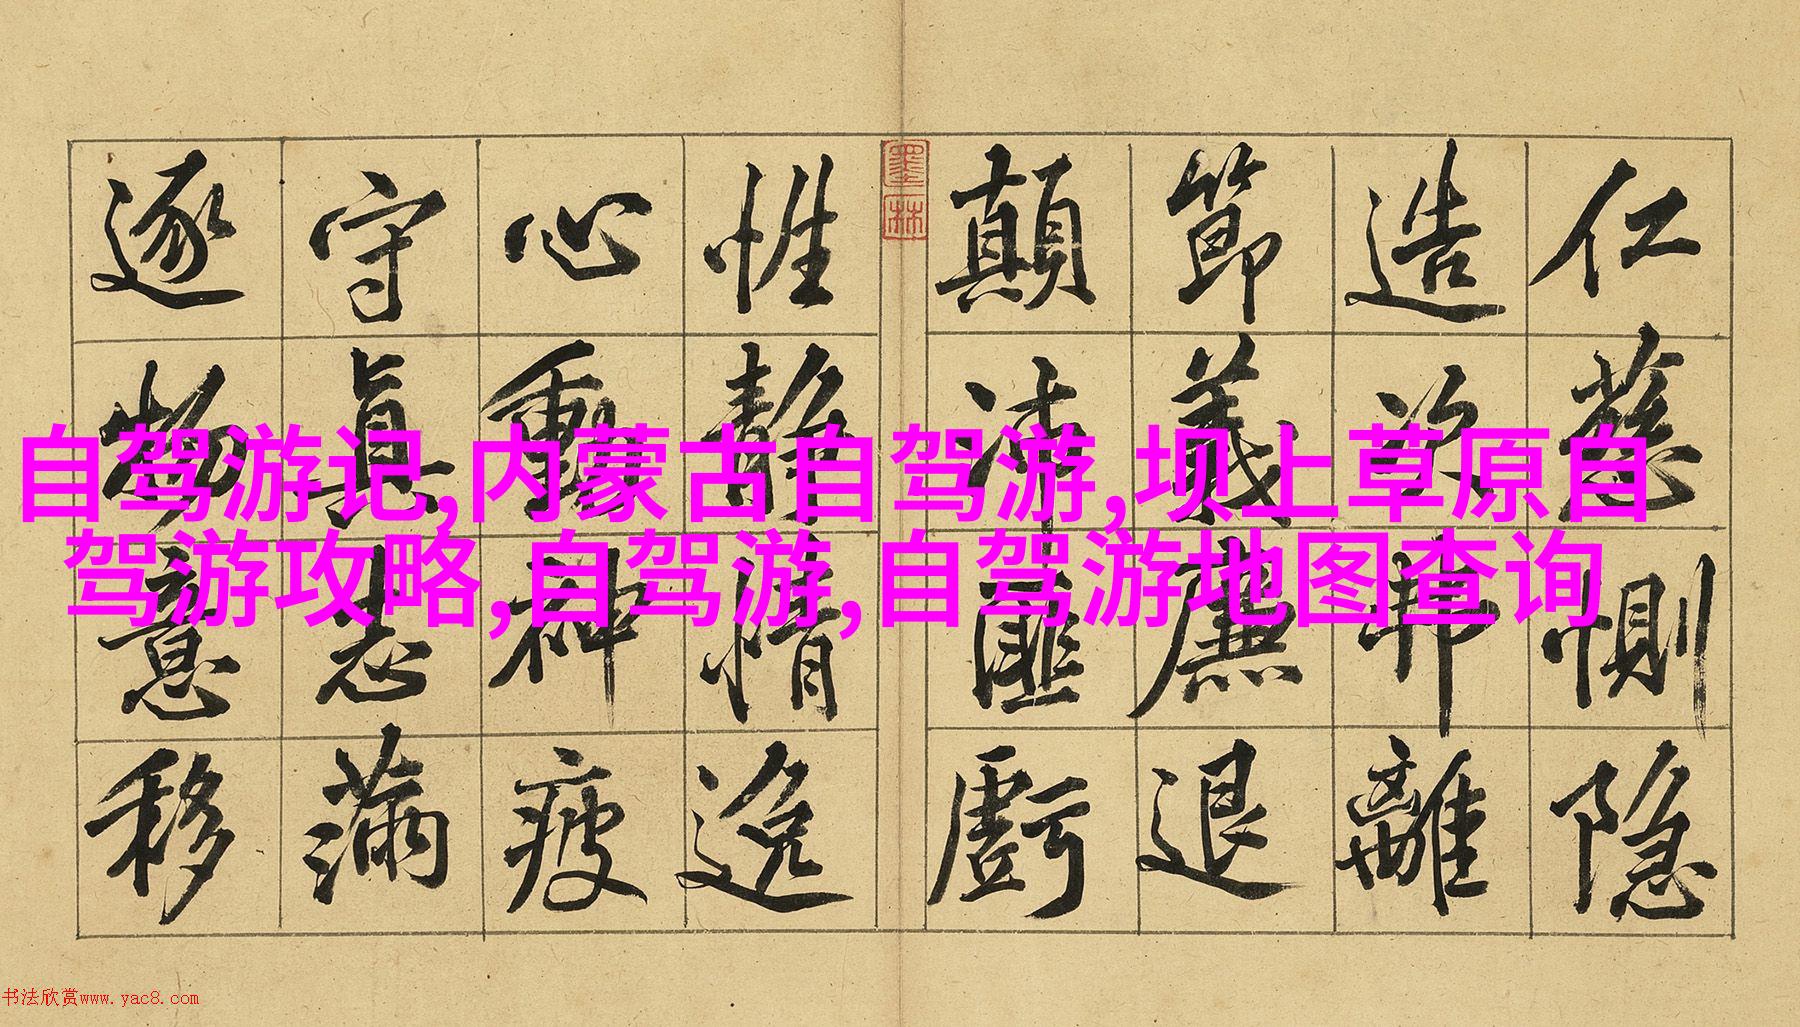 仁慈惻隐
造次弗離
節義廉退
顛沛匪虧
墨林
性静情逸
心動神疲
守真志滿
逐物意移
自驾游记,内蒙古自驾游,坝上草原自
驾游攻略,自驾游,自驾游地图查询
书法欣赏www.yac8.com